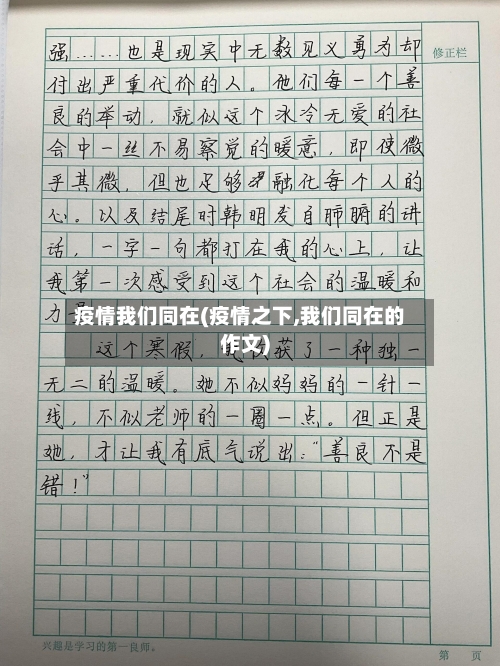 强……也是现实中无数见义勇为却
修正栏
付出严重代价的人。他们每一个善
良的举动，就似这个冰冷无爱的社
会中一丝不易察觉的暖意，即使微
乎其微，但也足够融化每个人的
心。以及结尾时韩明发自肺腑的讲
话，一字一句都打在我的心上，让
我第一次感受到这个社会的温暖和
力
疫情我们同在(疫情之下,我们同在的
作文)
这个寒假，获了一种独一
无二的温暖。她不似妈妈的一针一
线，不似老师的一圈一点。但正是
她，才让我有底气说出："善良不是
错！"
兴趣是学习的第一良师。
第 页